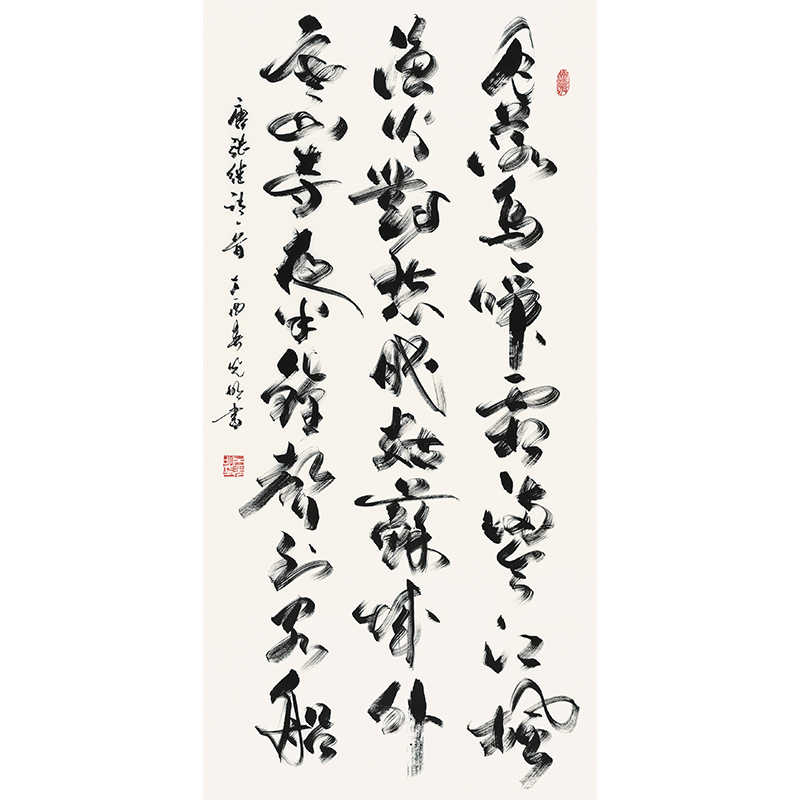 月落烏啼霜滿天江楓
漁火對愁眠姑蘇城外
寒山寺夜半鐘聲到客船
唐張繼詩一首 酉春光明書